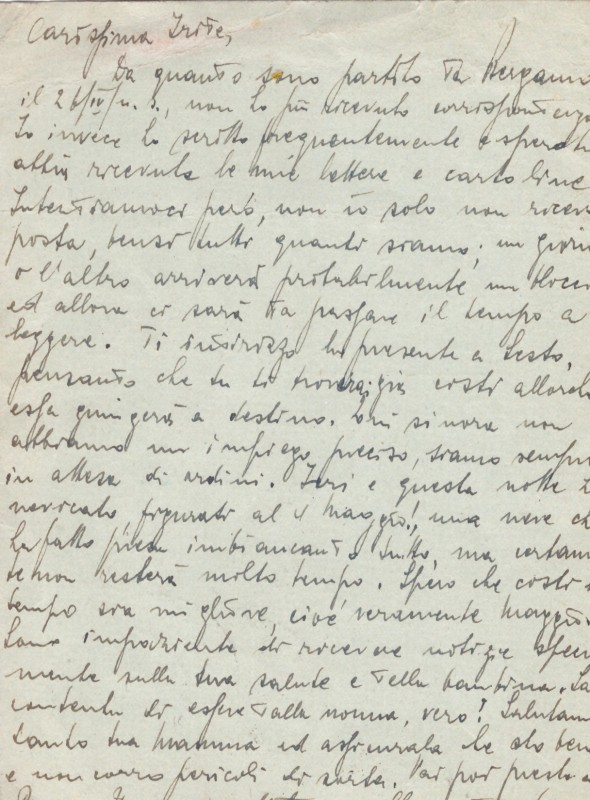 Carissima Iride,
Da quanto sono partito da Bergamo
il 26/IV/u.s., non ho più ricevuto corrispondenza
Io invece ho scritto frequentemente e spero tu
abbia ricevute le mie lettere e cartoline
Intendiamoci però, non io solo non ricev
posta, bensì tutti quanti siamo; un giorn
o l'altro arriverà probabilmente un blocc
ed allora ci sarà da passare il tempo a
leggere. Ti indirizzo la presente a Sesto,
pensando che tu ti troverai già costì allorch
essa giungerà a destino. Qui sinora non
abbiamo un impiego preciso, siamo sempre
in attesa di ordini. Ieri e questa notte h
nevicato, figurati al 4 Maggio!, una neve ch
ha fatto presa imbiancando tutto, ma certam
te non resterà molto tempo. Spero che costì
tempo sia migliore, cioè veramente Maggio.
Sono impaziente di ricevere notizie specia
mente sulla tua salute e della bambina. Sa
contenta di essere dalla nonna, vero! Salutam
tanto tua mamma ed assicurala che sto ben
e non corro pericoli di sorta. Vai poi presto a